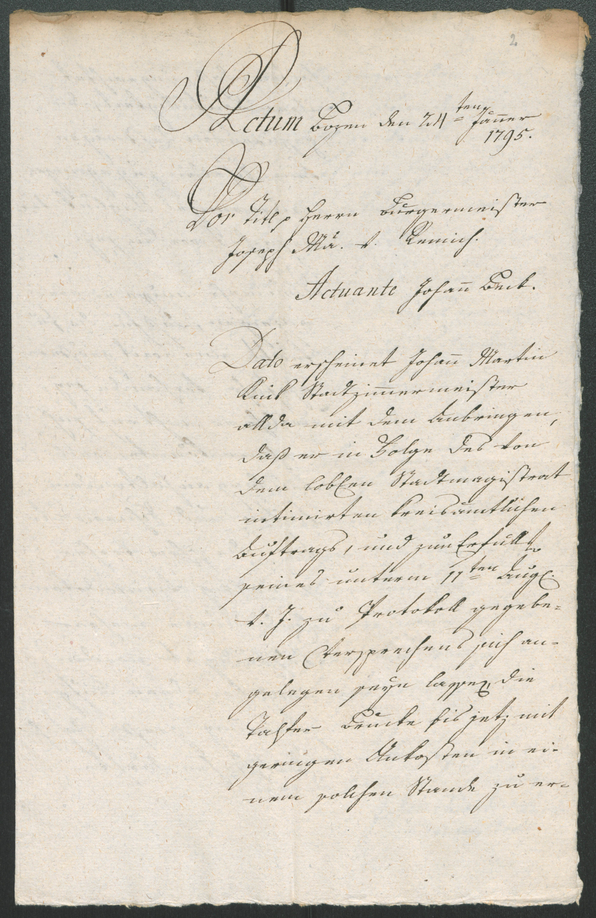 2
Actum Bozen den 24ten Jänner
1795.
Vor Titl. Herrn Burgermeister
Joseph Ma. v. Remich.
Actuante Johann Beck.
Dato erscheinet Johann Martin
Stadtzimmermeister
allda mit dem Anbringen,
daß er in Folge des von
dem löblen Stadtmagistrat
intimirten kreisamtlichen
Auftrags, und zur Erfüll
seines unterm 11ten Aug
v. J. zu Protokoll gegebe-
nen Versprechens sich an-
gelegen seyn lassen, die
Brucke bis jetz mit
geringen Unkosten in ei-
nem solchen Stande zu er-